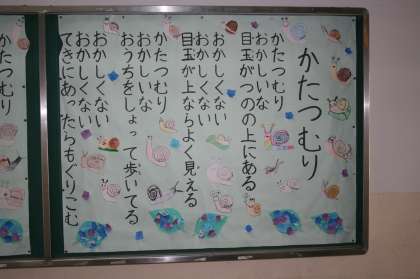 かたつむり
かたつむり
おかしいな
目玉がつのの上にある
おかしくない
おかしくない
目玉が上ならよく見える
かたつむり
おかしいな
おうちをしょって歩いてる
おかしくない
おかしくない
てきにあったらもぐりこむ